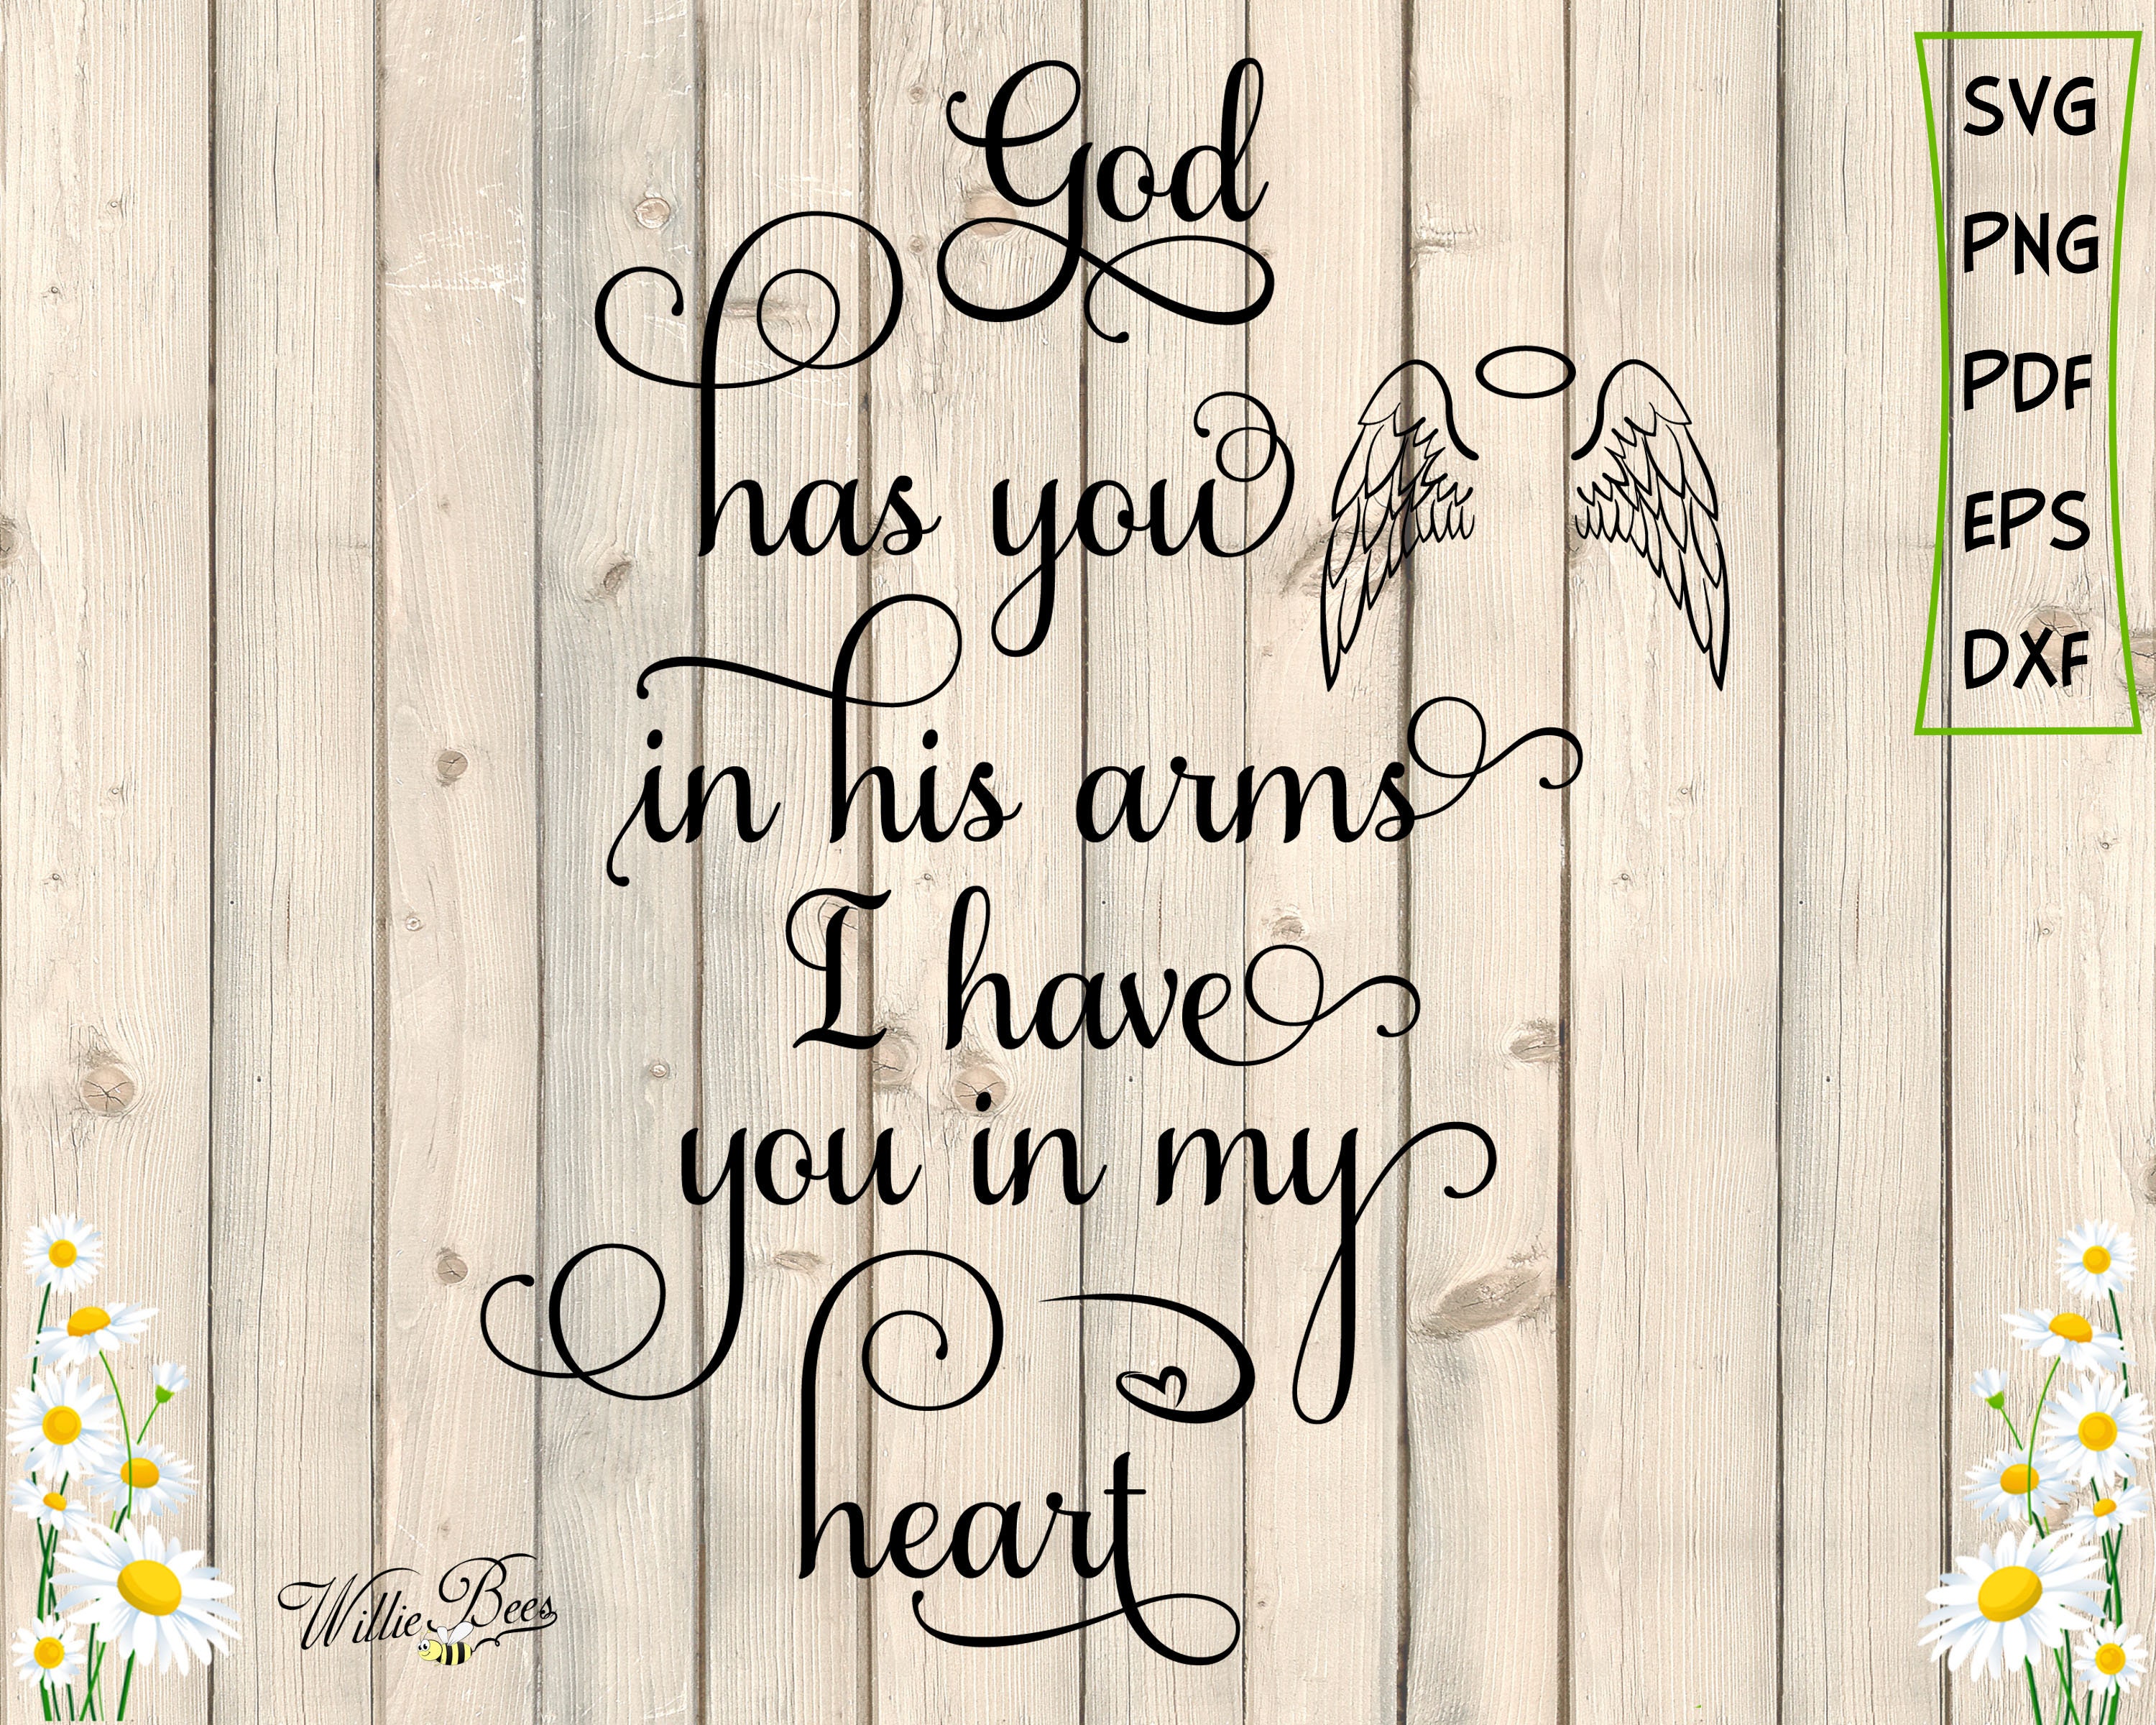 God
has you
in his arms
I have
you in my
heart
SVG
PNG
PDF
EPS
DXF
Willie Bees